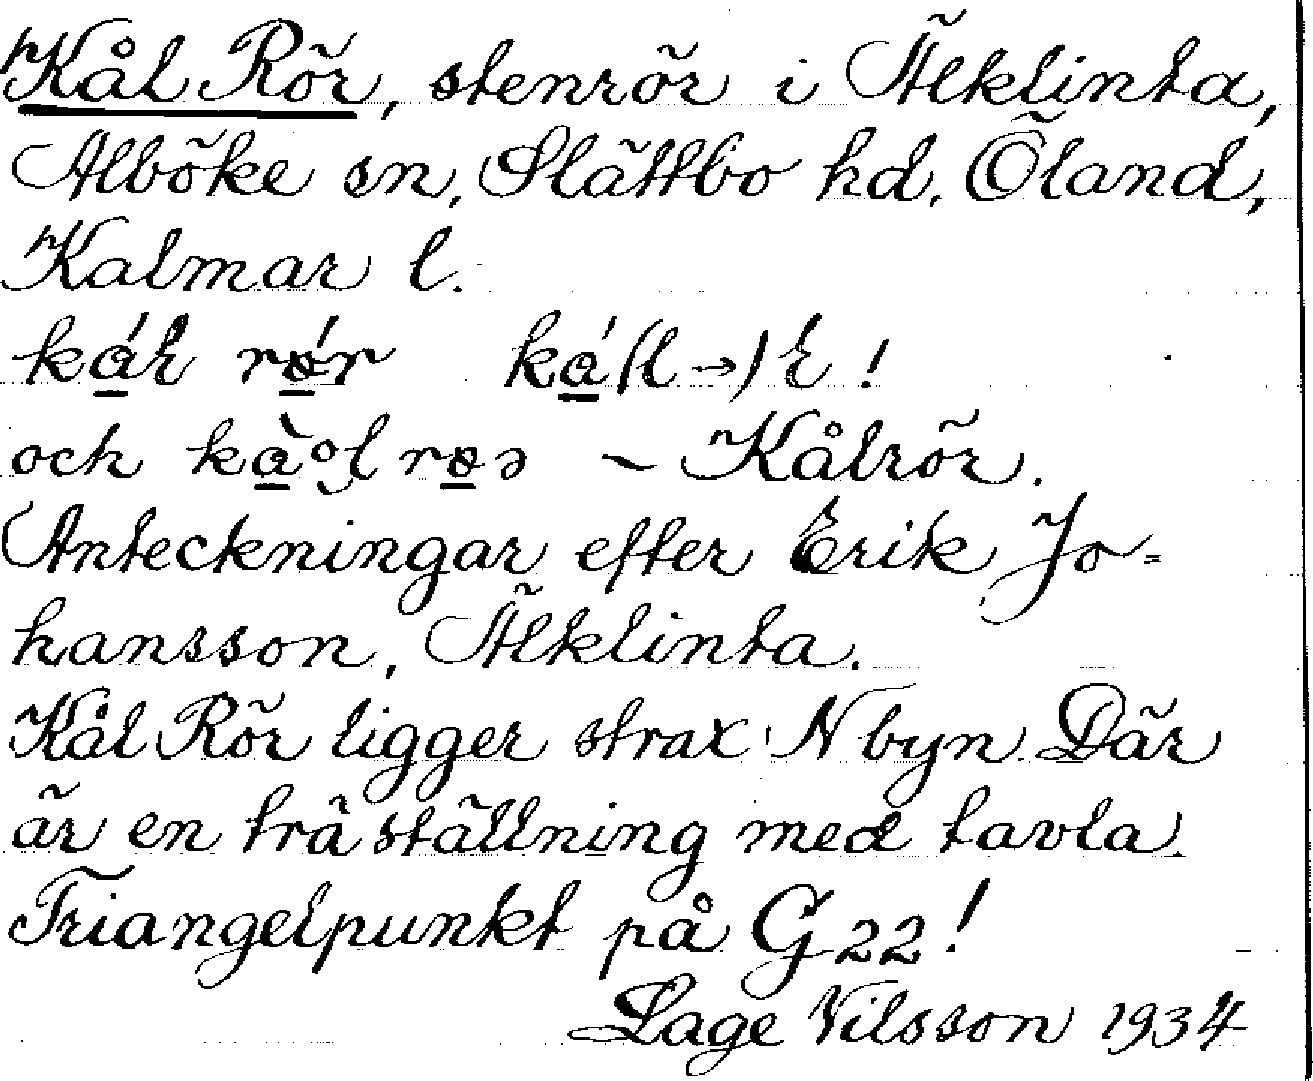 Kål Rör, stenrör i Älklinta,
Alböke sn, Slättbo hd, Öland,
Kalmar l.
och – Kålrör.
Anteckningar efter Erik Jo-
hansson, Älklinta.
Kål Rör ligger strax N byn. Där
är en träställning med tavla.
Triangelpunkt på G 22!
Lage Nilsson 1934